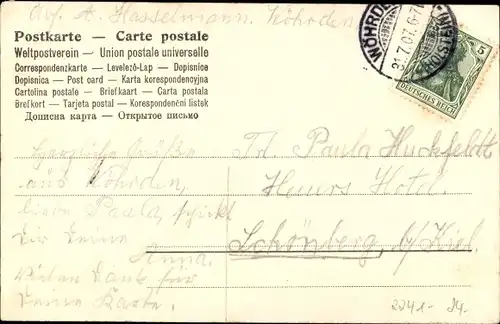 Abs. A. Hasselmann, Wöhrden
Postkarte — Carte postale
Weltpostverein — Union postale universelle
Correspondenzkarte — Levelező-Lap — Dopisnice
Dopisnica — Post card — Karta korespondencyjna
Cartolina postale — Briefkaart — Carta postala
Brefkort — Tarjeta postal — Korespondenční lístek
Дописна карта — Открытое письмо
WÖHRDEN
31.7.07. 6-7
(HOLSTEIN)
5
DEUTSCHES REICH
Herzliche Grüße
aus Wöhrden,
liebe Paula, schickt
Dir Deine
Anna.
Vielen Dank für
Deine Karte.
Frl. Paula Huckfeldt
Hotel
Schönberg b/Kiel.
2241- 24.